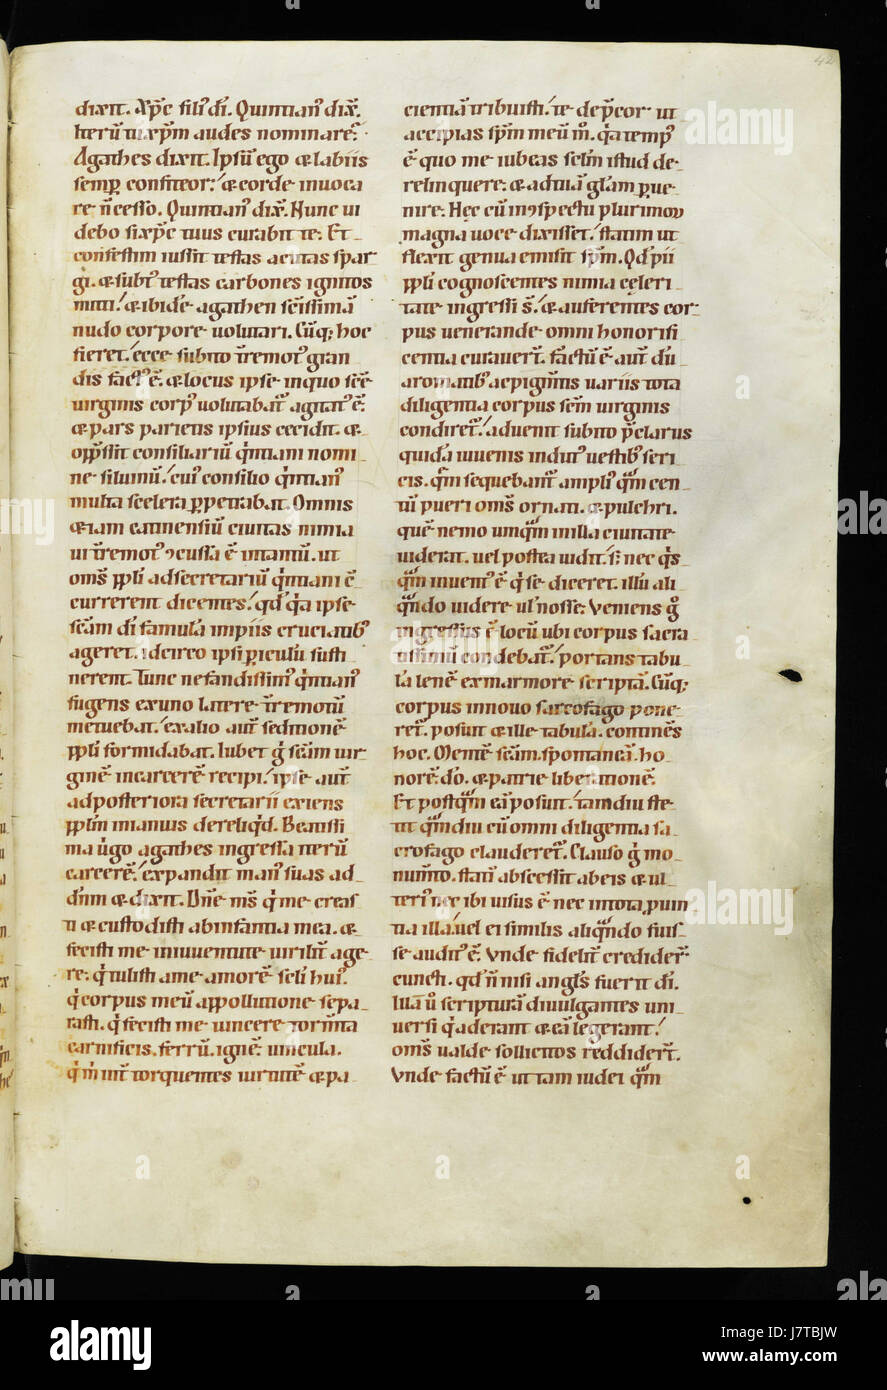 42
dixit. Xp̄c fili' dī. Quintian' dix̄.
Iterū tu xp̄m audes nominare?
Agathes dixit. Ipsū ego & labiis
semp̱ confiteor: & corde inuoca
re n̄ cesso. Quintian' dix̄. Nunc ui
debo si xp̄c tuus curabit te. Et
confestim iussit testas acutas spar
gi. & subt' testas carbones ignitos
mitti: & ibidē agathen sc̄issimā
nudo corpore uolutari. Cūq; hoc
fieret. ecce subito t̄remot' gran
dis fact' ē. & locus ipse in quo sc̄ē
uirginis corp' uolutabat̄ agitat' ē.
& pars parietis ipsius cecidit. &
opp̄ssit consiliariū q̄ntiani nomi
ne siluinū: cui' consilio q̄ntian'
multa scelera p̱petrabat. Omnis
& iam catinensiū ciuitas nimia
ui t̄remot' ɔcussa ē in tantū. ut
om̄s pp̄li ad secretariū q̄ntiani ē
currerent dicentes: qd̄ q̄a ipse
sc̄am dī famulā impiis cruciatib'
ageret. idcirco ipsi p̱iculū susti
nerent. Tunc nefandissim' q̄ntian'
fugens ex uno latere t̄remotū
metuebat. ex alio aut̄ seditionē
pp̄li formidabat. Iubet g̊ sc̄am uir
ginē in carcerē recipi: ipse aut̄
ad posteriora secretarii exiens
pp̄lm in ianuis dereliq̄d. Beatissi
ma ū̊go agathes ingressa iterū
carcerē: expandit man' suas ad
dn̄m & dixit. Dn̄e m̄s q̄ me creas
ti & custodisti ab infantia mea. &
fecisti me in iuuentute uirilit̄ age
re. q̄ tulisti a me amorē sc̄li hui'.
q̄ corpus meū a pollutione sepa
rasti. q̄ fecisti me uincere torm̄ta
carnificis. ferrū. ignē. uincula.
q̄ m̄ int̄ torquentes uirtutē & pa
cientiā tribuisti: te dep̄cor ut
accipias sp̄m meū m̊. q̄a temp'
ē quo me iubeas sc̄lm istud de
relinquere. & ad tuā gl̄am p̱ue
nire. Hec cū in ɔspectu plurimoꝝ
magna uoce dixisset: statim ut
flexit genua emisit sp̄m. Qd̄ pii
pp̄li cognoscentes nimia celeri
tate ingressi s̄. & auferentes cor
pus uenerande omni honorifi
centia curauer̄. Factū ē aut̄ dū
aromatib' ac pigm̄tis uariis tota
diligentia corpus sc̄m uirginis
condiret̄: aduenit subito p̄clarus
quidā iuuenis indut' uestib' seri
cis. q̄m sequebant̄ ampli' q̄m cen
tū pueri om̄s ornati. & pulchri.
quē nemo umq̄m in illa ciuitate
uiderat. uel postea uidit. sɜ nec q̄s
q̄m inuent' ē q̄ se diceret. illū ali
q̄ndo uidere ul' nosse. Veniens g̊
ingressus ē locū ubi corpus sacra
tissimū condebat̄: portans tabu
lā lenē ex marmore scriptā. Cūq;
corpus in nouo sarcofago pone
ret̄. posuit & ille tabulā. continēs
hoc. Mentē sc̄am. spontaneā. ho
norē. dō. & patrie liberationē.
Et postq̄m eā posuit: tamdiu ste
tit q̄mdiu cū omni diligentia sa
crofago clauderet̄. Clauso g̊ mo
num̄to. stati' abscessit ab eis & ul
teri' nec ibi uisus ē nec in tota p̱uin
tia illa. uel ei similis aliq̄ndo fuis
se audit' ē. Vnde fidelit̄ credider̄
cuncti. qd̄ n̄ nisi angl̄s fuerit dī.
Illā ū scripturā diuulgantes uni
uersi q̄ aderant & eā legerant:
om̄s ualde sollicitos reddider̄.
Vnde factū ē ut tam iudei q̄m
alamy
J7TBJW
www.alamy.com